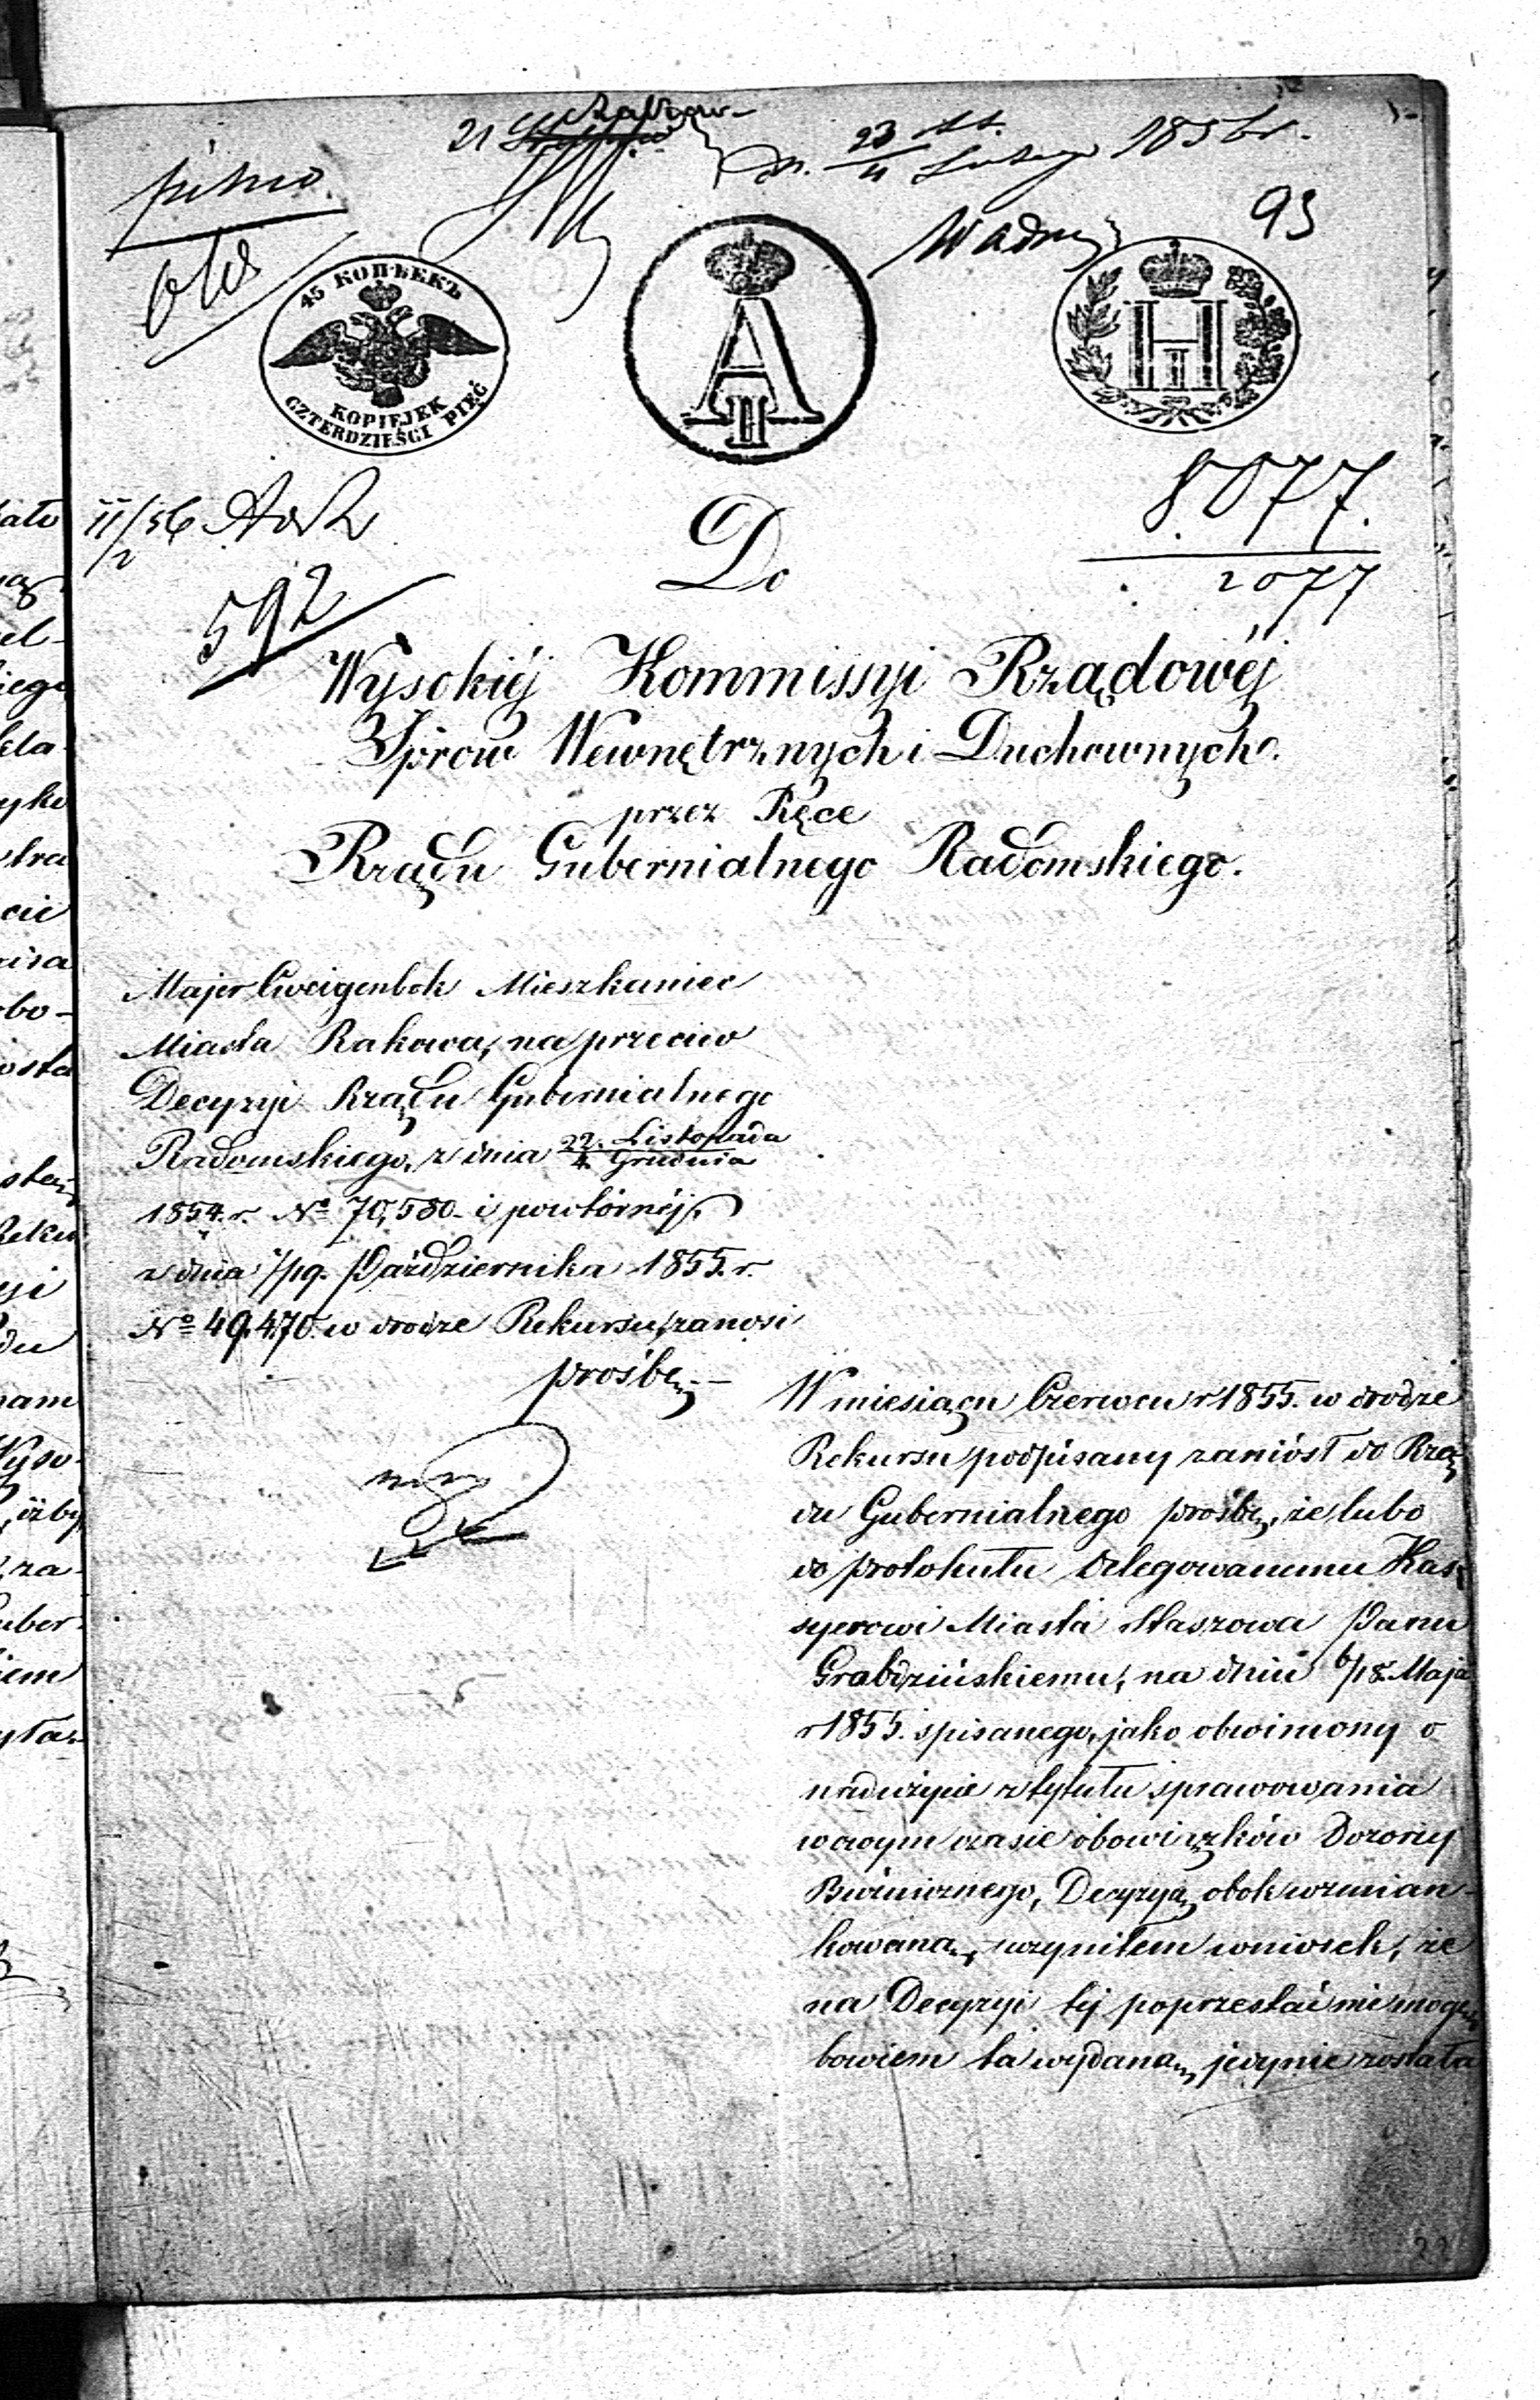 pilno
93
45 КОПѢЕКЪ
KOPIEJEK
CZTERDZIEŚCI PIĘĆ
A II
Н I
8077.
2077
592
Do
Wysokiéj Kommissyi Rządowéj
Spraw Wewnętrznych i Duchownych.
przez Ręce
Rządu Gubernialnego Radomskiego.
Majer Cweigenbok Mieszkaniec
Miasta Rakowa, na przeciw
Decyzyi Rządu Gubernialnego
Radomskiego, z dnia 22. Listopada / 4. Grudnia
1854. r. No 70,580. i powtórnéj
z dnia 7/19. Października 1855. r.
No 49,470. w drodze Rekursu, zanosi
prośbę.
W miesiącu Czerwcu r 1855. w drodze
Rekursu podpisany zaniósł do Rzą
du Gubernialnego prośbę, że lubo
do protokułu delegowanemu Kas
syerowi Miasta Staszowa Panu
Grabdzińskiemu, na dniu 6/18. Maja
r 1855. spisanego, jako obwiniony o
nadużycie z tytułu sprawowania
w owym czasie obowiązków Dozorcy
Bóżnicznego, Decyzyą obok wzmian-
kowaną, uczyniłem wniosek, że
na Decyzyi téj poprzestać nie mogę,
bowiem ta wydaną jedynie została